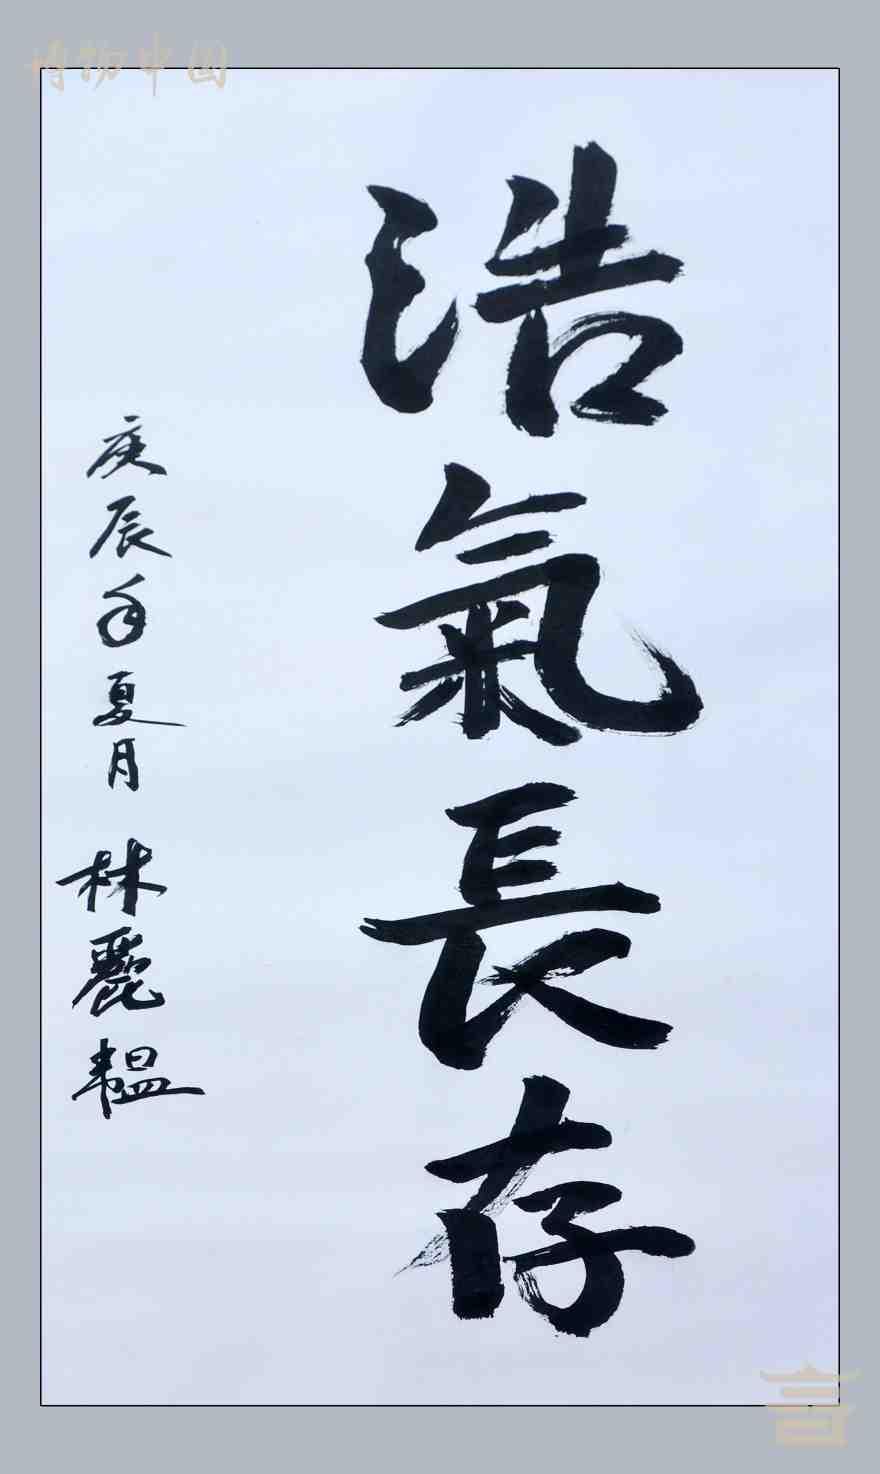 博物中国
浩氣長存
庚辰年夏月 林麗韞